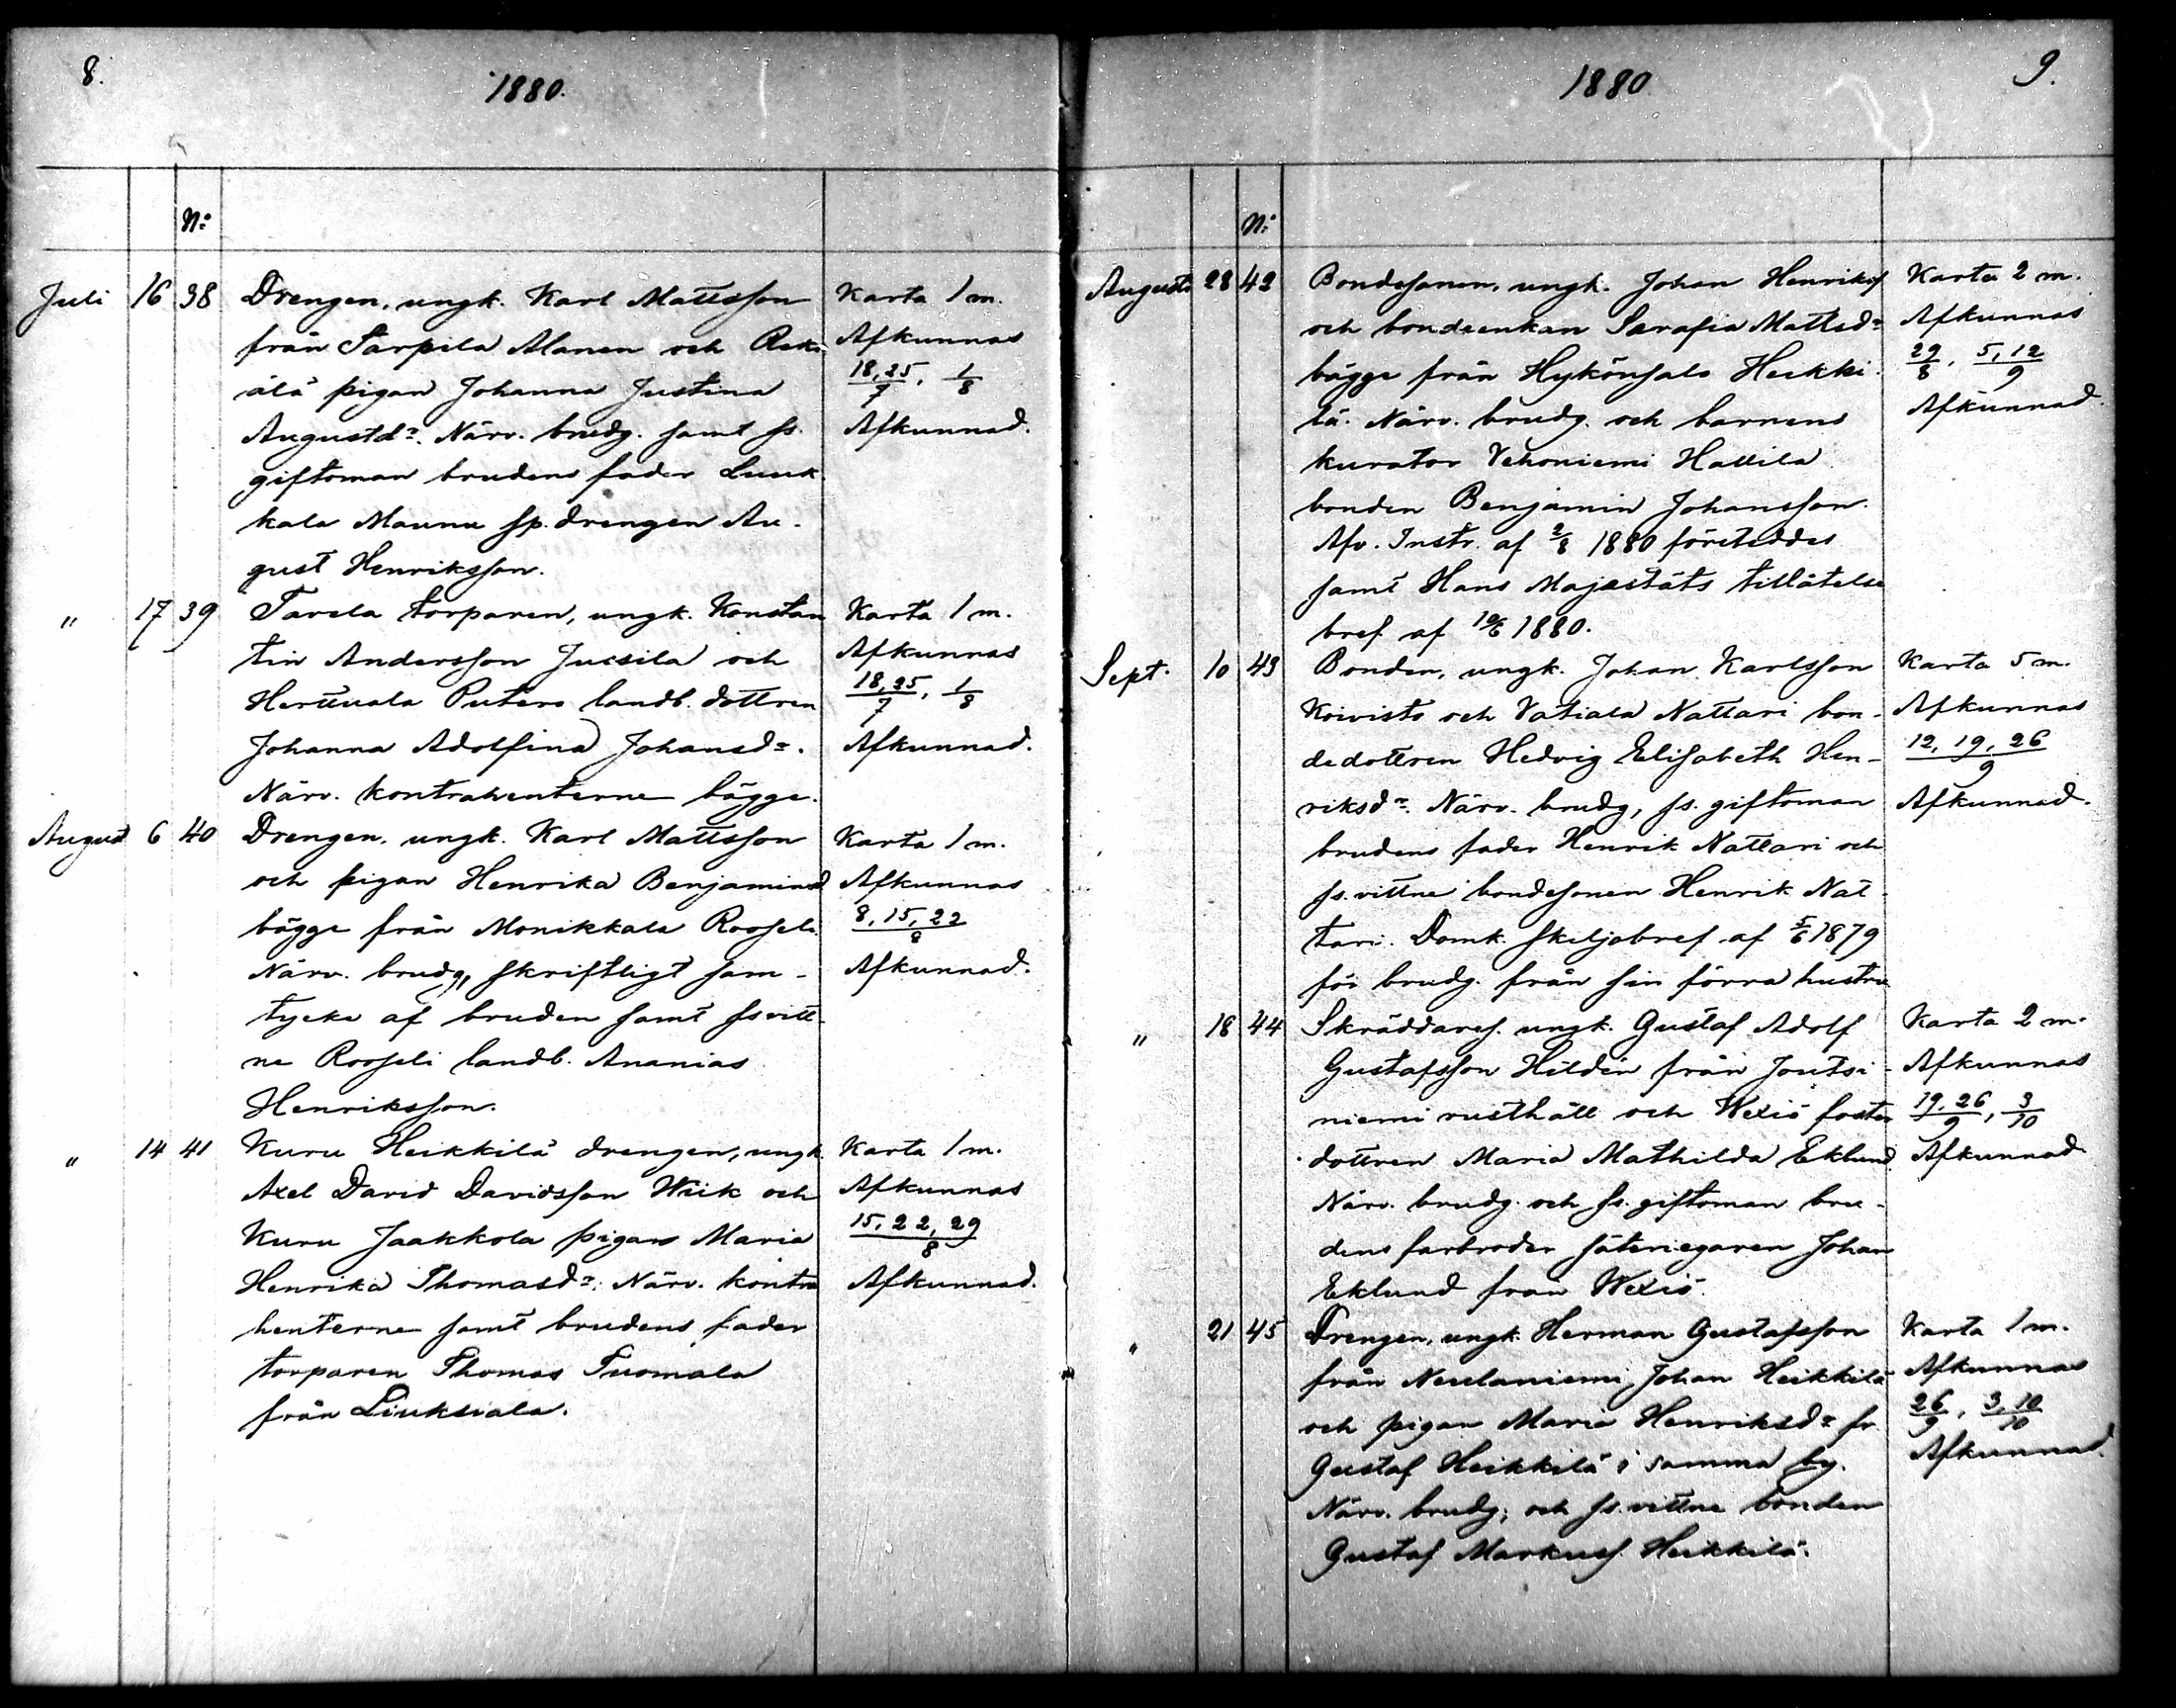 8.
1880.
N:o
Juli 16 38 Drengen, ungk. Karl Mattsson Karta 1 m.
från Tarpila Alanen och Reki- Afkunnas
älä pigan Johanna Justina 18,25/7, 1/8
Augustd:r. Närv. brudg. samt ss. Afkunnad.
giftoman brudens fader Liuk
kala Maunu sp. drengen Au-
gust Henriksson.
" 17 39 Tavela torparen, ungk. Konstan Karta 1 m.
tin Andersson Jussila och Afkunnas
Herttuala Puters landb. dottren 18,25/7, 1/8
Johanna Adolfina Johansd:r. Afkunnad.
Närv. kontrahenterne bägge.
August 6 40 Drengen, ungk. Karl Mattsson Karta 1 m.
och pigan Henrika Benjaminsd Afkunnas
bägge från Monikkala Roosela. 8,15,22/8
Närv. brudg, skriftligt sam- Afkunnad.
tycke af bruden samt ss vitt-
ne Rooseli landb. Ananias
Henriksson.
" 14 41 Kuru Heikkilä drengen, ungk. Karta 1 m.
Axel David Davidsson Wiik och Afkunnas
Kuru Jaakkola pigan Maria 15,22,29/8
Henrika Thomasd:r. Närv. kontra Afkunnad.
henterne samt brudens fader
torparen Thomas Tuomala
från Liuksiala.
1880
9.
N:o
Augusti 28 42 Bondesonen, ungk. Johan Henrikss Karta 2 m.
och bondeenkan Serafia Mattsd:r Afkunnas
bägge från Hykönsalo Heikki- 29/8, 5,12/9
lä. Närv. brudg. och barnens Afkunnad.
kurator Vehoniemi Hallila
bonden Benjamin Johansson.
Afv. Instr. af 2/8 1880 företeddes
samt Hans Majestäts tillåtelse
bref af 10/6 1880.
Sept. 10 43 Bonden, ungk. Johan Karlsson Karta 5 m.
Koivisto och Vatiala Nattari bon- Afkunnas
dedottren Hedvig Elisabeth Hen- 12,19,26/9
riksd:r. Närv. brudg, ss. giftoman Afkunnad.
brudens fader Henrik Nattari och
ss. vittne bondesonen Henrik Nat-
tari. Domk. skiljobref af 5/6 1879
för brudg. från sin förra hustru
" 18 44 Skräddares. ungk. Gustaf Adolf Karta 2 m.
Gustafsson Hildén från Joutsi- Afkunnas
niemi rusthåll och Wexiö foster 19,26/9, 3/10
dottren Maria Mathilda Eklund. Afkunnad
Närv. brudg. och ss. giftoman bru-
dens farbroder säteriegaren Johan
Eklund från Wexiö.
" 21 45 Drengen, ungk. Herman Gustafsson Karta 1 m.
från Neulaniemi Johan Heikkilä Afkunnas
och pigan Maria Henriksd:r fr. 26/9, 3,10/10
Gustaf Heikkilä i samma by. Afkunnad.
Närv. brudg; och ss. vittne bonden
Gustaf Markuss. Heikkilä.